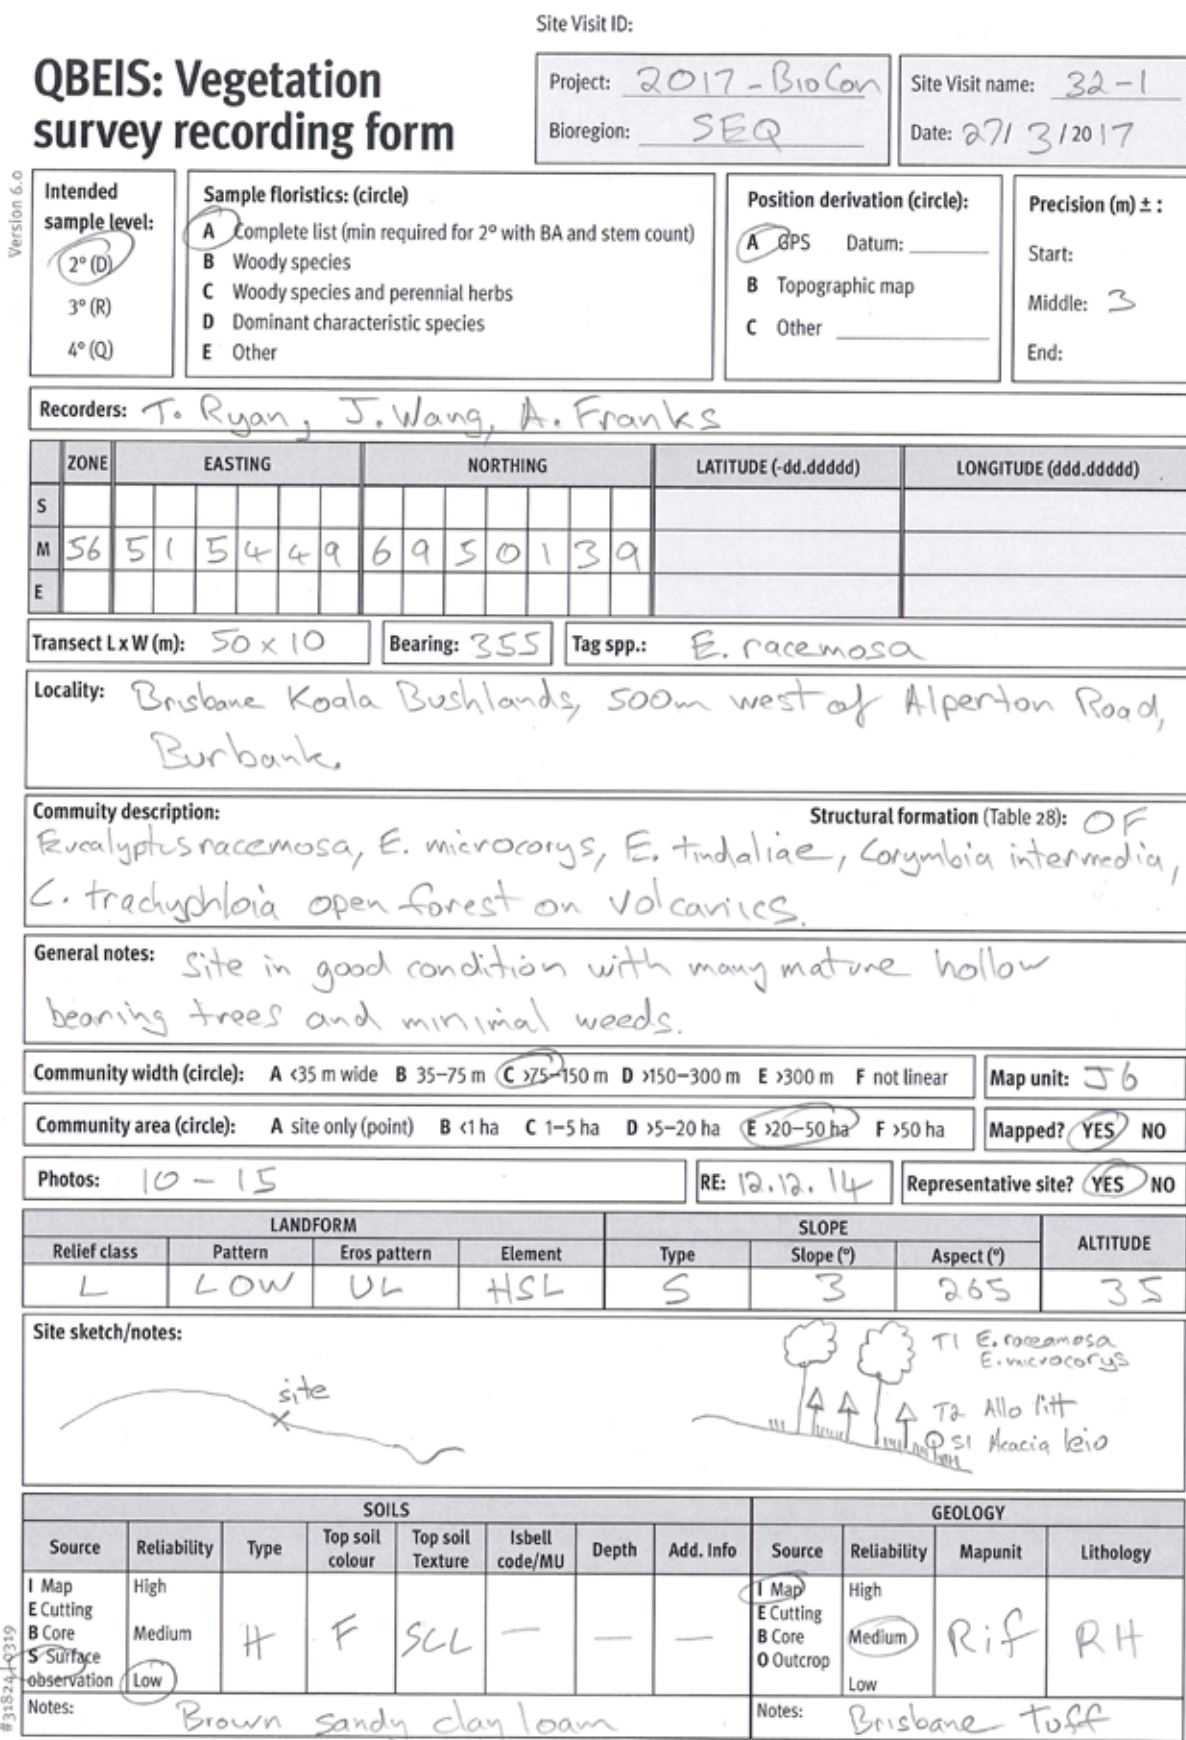 Site Visit ID:
QBEIS: Vegetation
survey recording form
Project: 2017-BioCon
Bioregion: SEQ
Site Visit name: 32-1
Date: 27/3/2017
Version 6.0
Intended
sample level:
2° (D)
3° (R)
4° (Q)
Sample floristics: (circle)
A Complete list (min required for 2° with BA and stem count)
B Woody species
C Woody species and perennial herbs
D Dominant characteristic species
E Other
Position derivation (circle):
A GPS Datum:
B Topographic map
C Other
Precision (m) ± :
Start:
Middle: 3
End:
Recorders: T. Ryan, J. Wang, A. Franks
ZONE EASTING NORTHING LATITUDE (-dd.ddddd) LONGITUDE (ddd.ddddd)
S
M 56 515449 6950139
E
Transect L x W (m): 50 x 10 Bearing: 355 Tag spp.: E. racemosa
Locality: Brisbane Koala Bushlands, 500m west of Alperton Road,
Burbank.
Commuity description: Structural formation (Table 28): OF
Eucalyptus racemosa, E. microcorys, E. tindaliae, Corymbia intermedia,
C. trachyphloia open forest on volcanics.
General notes: Site in good condition with many mature hollow
bearing trees and minimal weeds.
Community width (circle): A <35 m wide B 35–75 m C >75–150 m D >150–300 m E >300 m F not linear Map unit: J6
Community area (circle): A site only (point) B <1 ha C 1–5 ha D >5–20 ha E >20–50 ha F >50 ha Mapped? YES NO
Photos: 10 - 15 RE: 12.12.14 Representative site? YES NO
LANDFORM SLOPE ALTITUDE
Relief class Pattern Eros pattern Element Type Slope (°) Aspect (°)
L LOW UL HSL S 3 265 35
Site sketch/notes:
site
T1 E. raceamosa
E. microcorys
T2 Allo litt
S1 Acacia leio
SOILS GEOLOGY
Source Reliability Type Top soil colour Top soil Texture Isbell code/MU Depth Add. Info Source Reliability Mapunit Lithology
I Map High I Map High
E Cutting E Cutting
B Core Medium H F SCL — — — B Core Medium Rif RH
S Surface O Outcrop
observation Low Low
Notes: Brown sandy clay loam Notes: Brisbane Tuff
#31824 0319